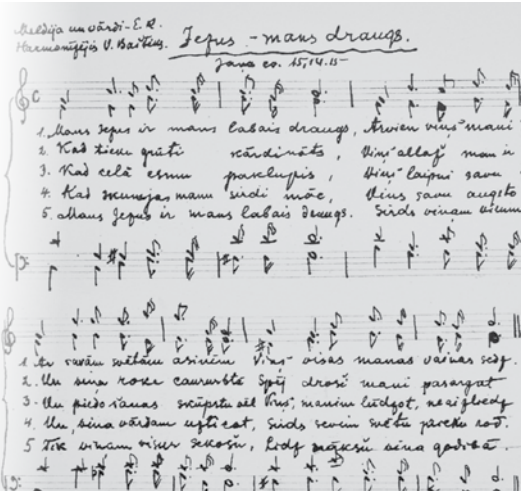 Meldija un vārdi - E. R.
Harmonizējis V. Baštiks.
Jezus - mans draugs.
Jāņa ev. 15,14.15
1. Mans Jezus ir mans labais draugs, Arvien viņš mani
2. Kad tieku grūti kārdināts, Viņš allaž man ir
3. Kad ceļā esmu paklupis, Viņš laipni savu
4. Kad skumjas manu sirdi māc, Viņš savu augsto
5. Mans Jezus ir mans labais draugs. Sirds viņam
1. Ar savām svētām asinīm Viņš visas manas vainas sedz.
2. Un viņa roka caururbtā Spēj droši mani pasargāt
3. Un piedošanas skūpstu vēl Viņš, manim lūdzot, neaizliedz
4. Un, viņa vārdam uzticot, Sirds sevim svētu prieku rod.
5. Tik viņam visur sekošu, Līdz viņa godībā.